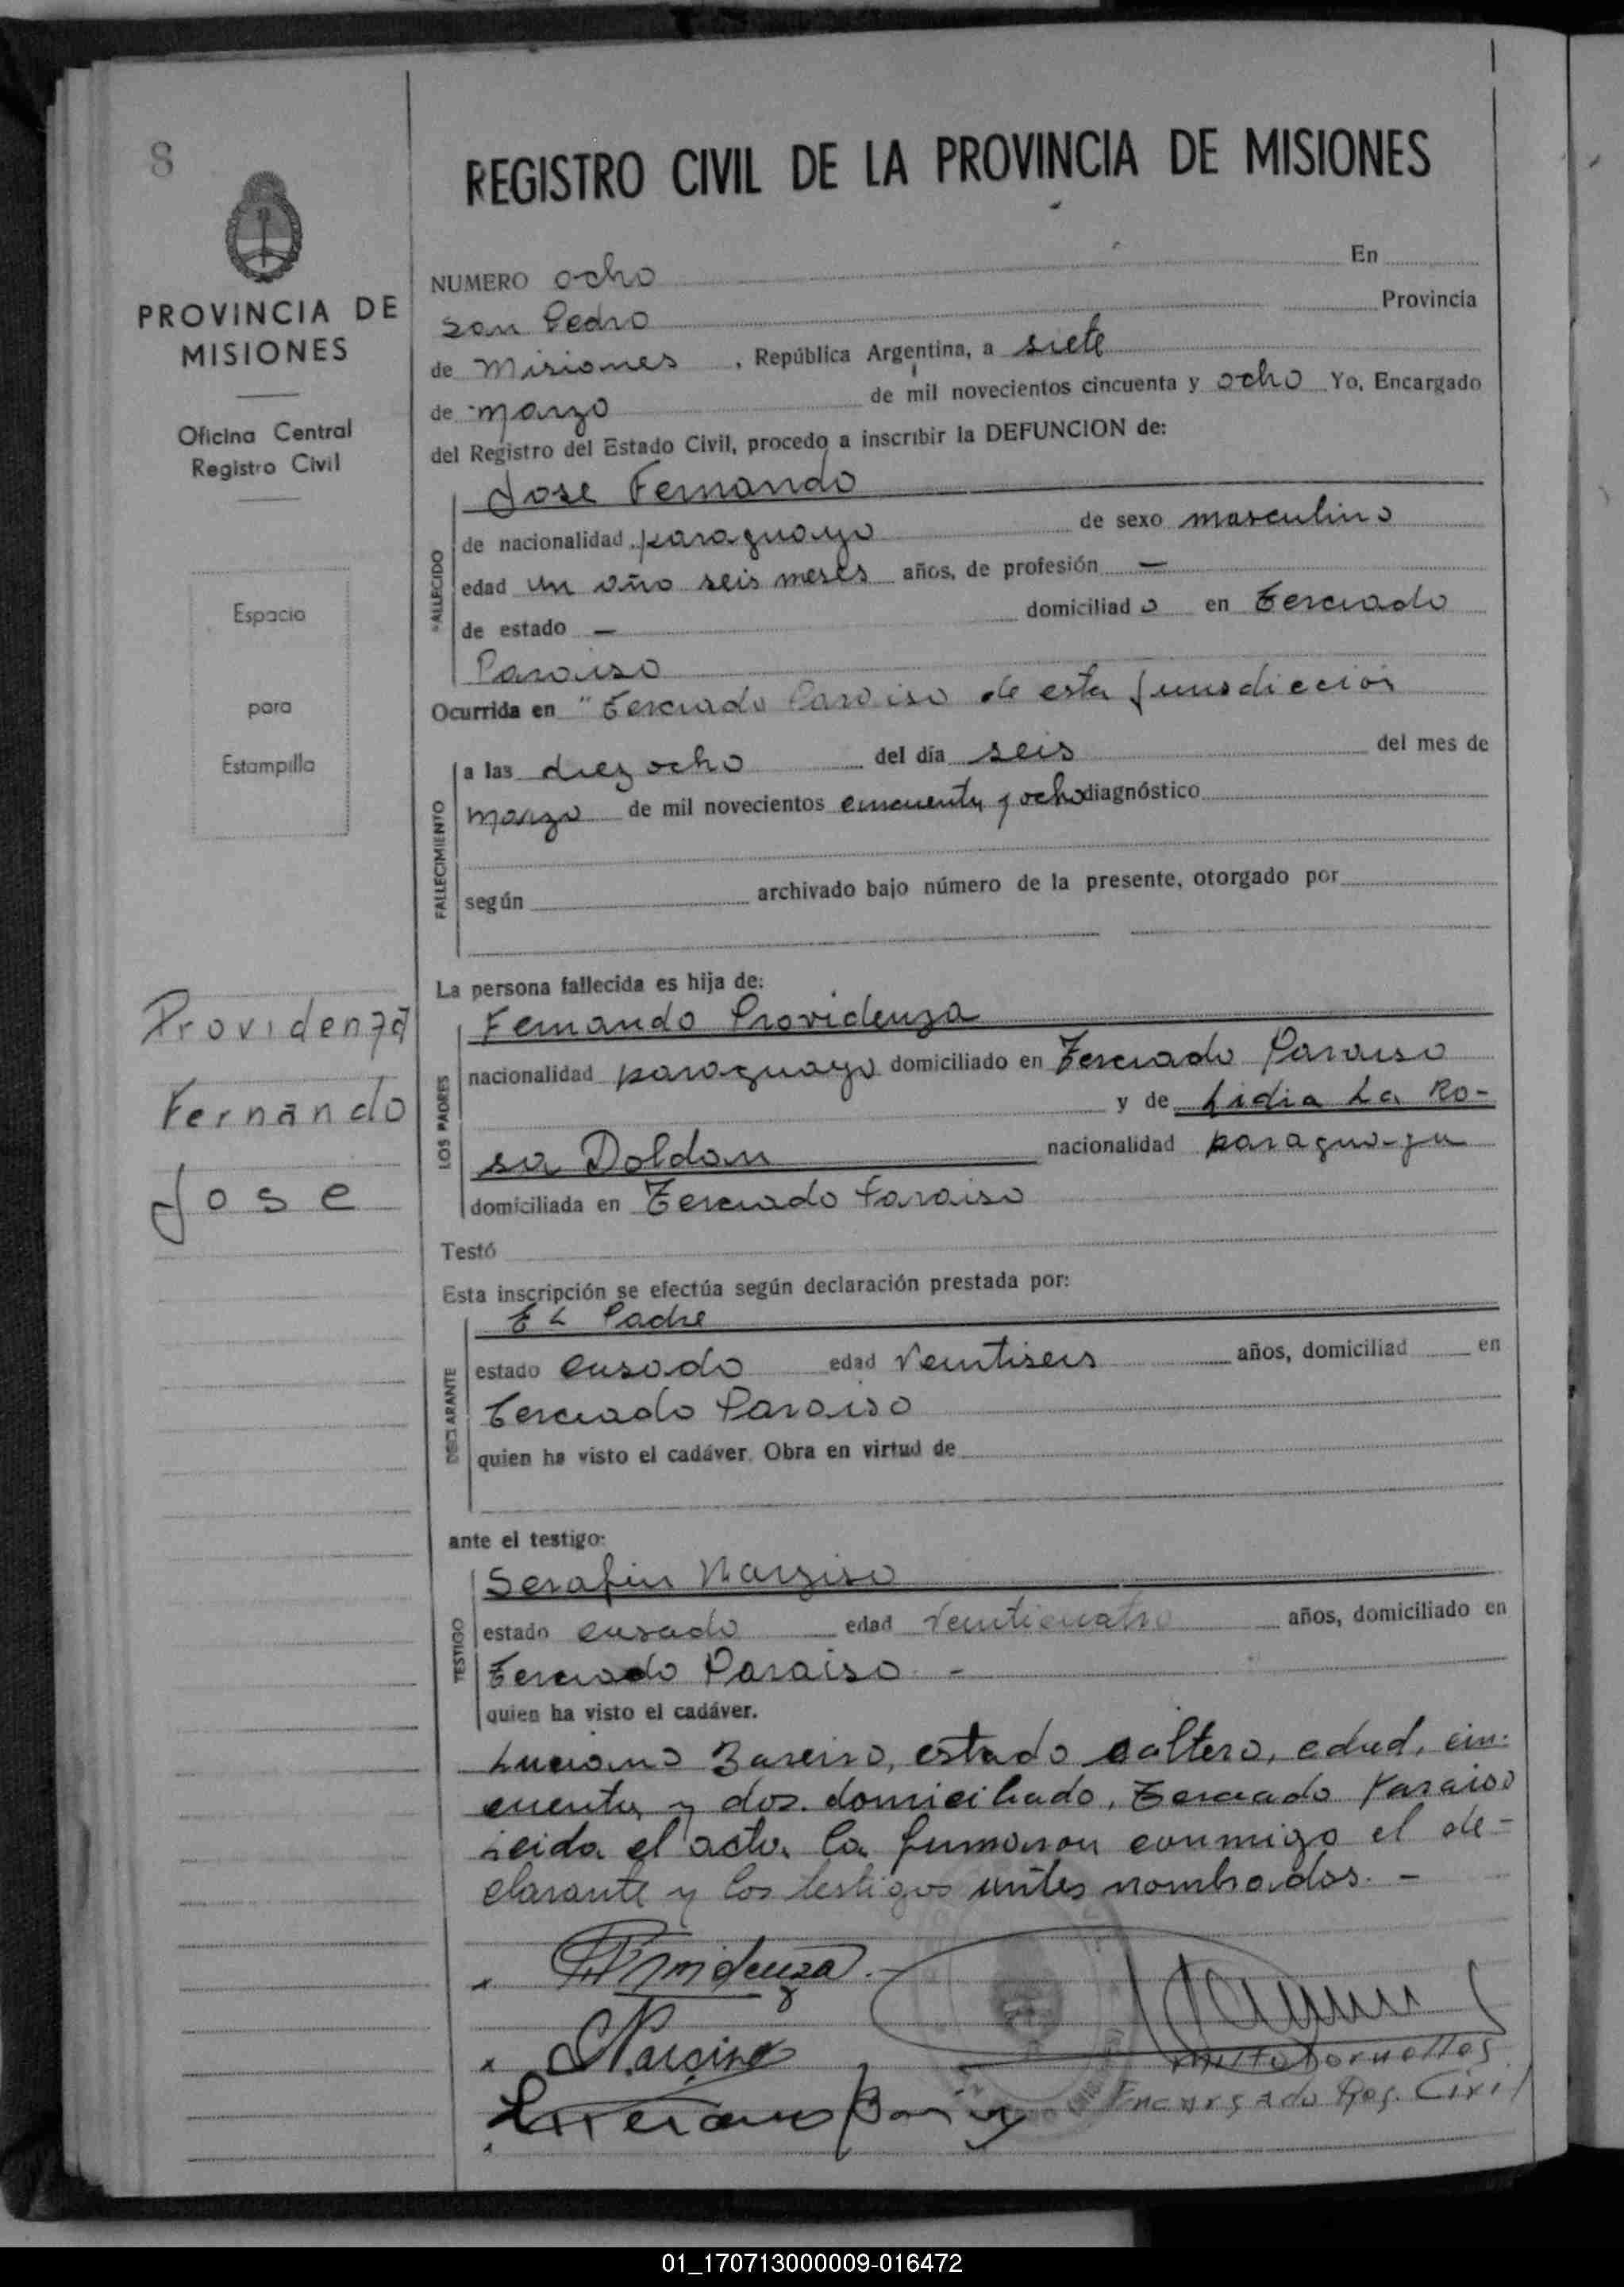 8
PROVINCIA DE
MISIONES
Oficina Central
Registro Civil
Espacio
para
Estampilla
Providenza
Fernando
Jose
REGISTRO CIVIL DE LA PROVINCIA DE MISIONES
NUMERO ocho En
San Pedro Provincia
de Misiones , República Argentina, a siete
de marzo de mil novecientos cincuenta y ocho Yo, Encargado
del Registro del Estado Civil, procedo a inscribir la DEFUNCION de:
FALLECIDO
Jose Fernando
de nacionalidad paraguayo de sexo masculino
edad un año seis meses años, de profesión —
de estado — domiciliado en Terciado
Paraiso
Ocurrida en "Terciado Paraiso de esta jurisdiccion
FALLECIMIENTO
a las diez ocho del día seis del mes de
marzo de mil novecientos cincuenta y ocho diagnóstico
según archivado bajo número de la presente, otorgado por
La persona fallecida es hija de:
LOS PADRES
Fernando Providenza
nacionalidad paraguayo domiciliado en Terciado Paraiso
y de Lidia La Ro-
sa Doldan nacionalidad paraguaya
domiciliada en Terciado Paraiso
Testó
Esta inscripción se efectúa según declaración prestada por:
DECLARANTE
EL Padre
estado casado edad veintiseis años, domiciliad en
Terciado Paraiso
quien ha visto el cadáver. Obra en virtud de
ante el testigo:
TESTIGO
Serafin Narziso
estado casado edad veinticuatro años, domiciliado en
Terciado Paraiso -
quien ha visto el cadáver.
Luciano Bareiro, estado soltero, edad, cin-
cuenta y dos. domiciliado, Terciado Paraiso
Leida el acta, la firmaron conmigo el de-
clarante y los testigos antes nombrados. -
Providenza
Narciso
Encargado Reg. Civil
Luciano
01_170713000009-016472